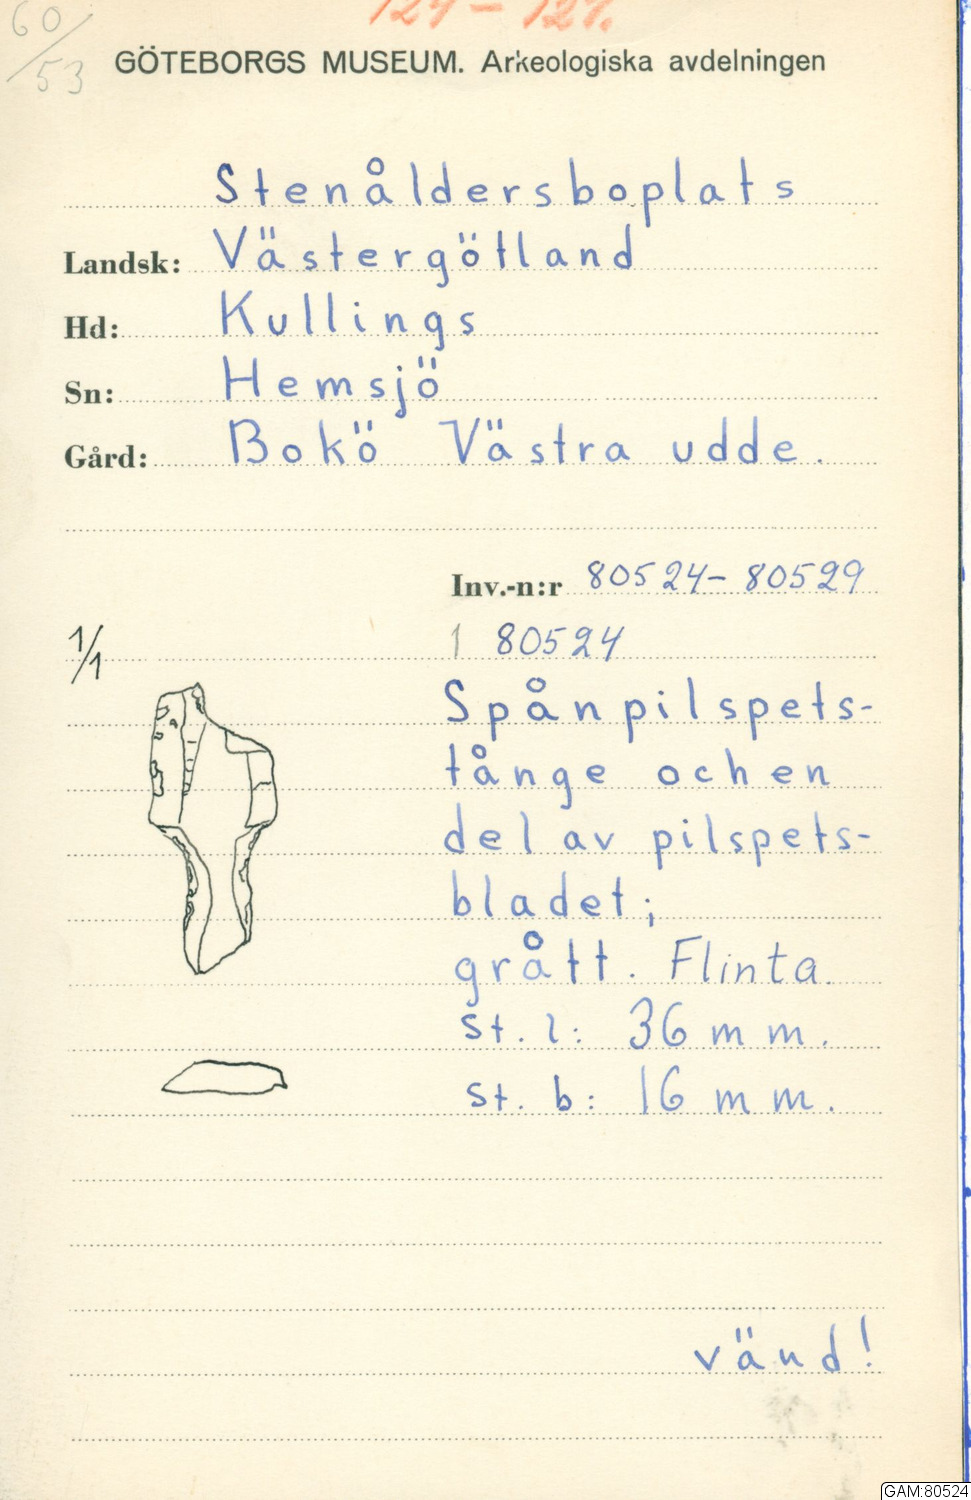 60/53
124-127.
GÖTEBORGS MUSEUM. Arkeologiska avdelningen
Stenåldersboplats
Landsk: Västergötland
Hd: Kullings
Sn: Hemsjö
Gård: Bokö Västra udde.
Inv.-n:r 80524-80529
1/1
1 80524
Spånpilspets-
tånge och en
del av pilspets-
bladet;
grått. Flinta.
st. l: 36 mm.
st. b: 16 mm.
vänd!
GAM:80524